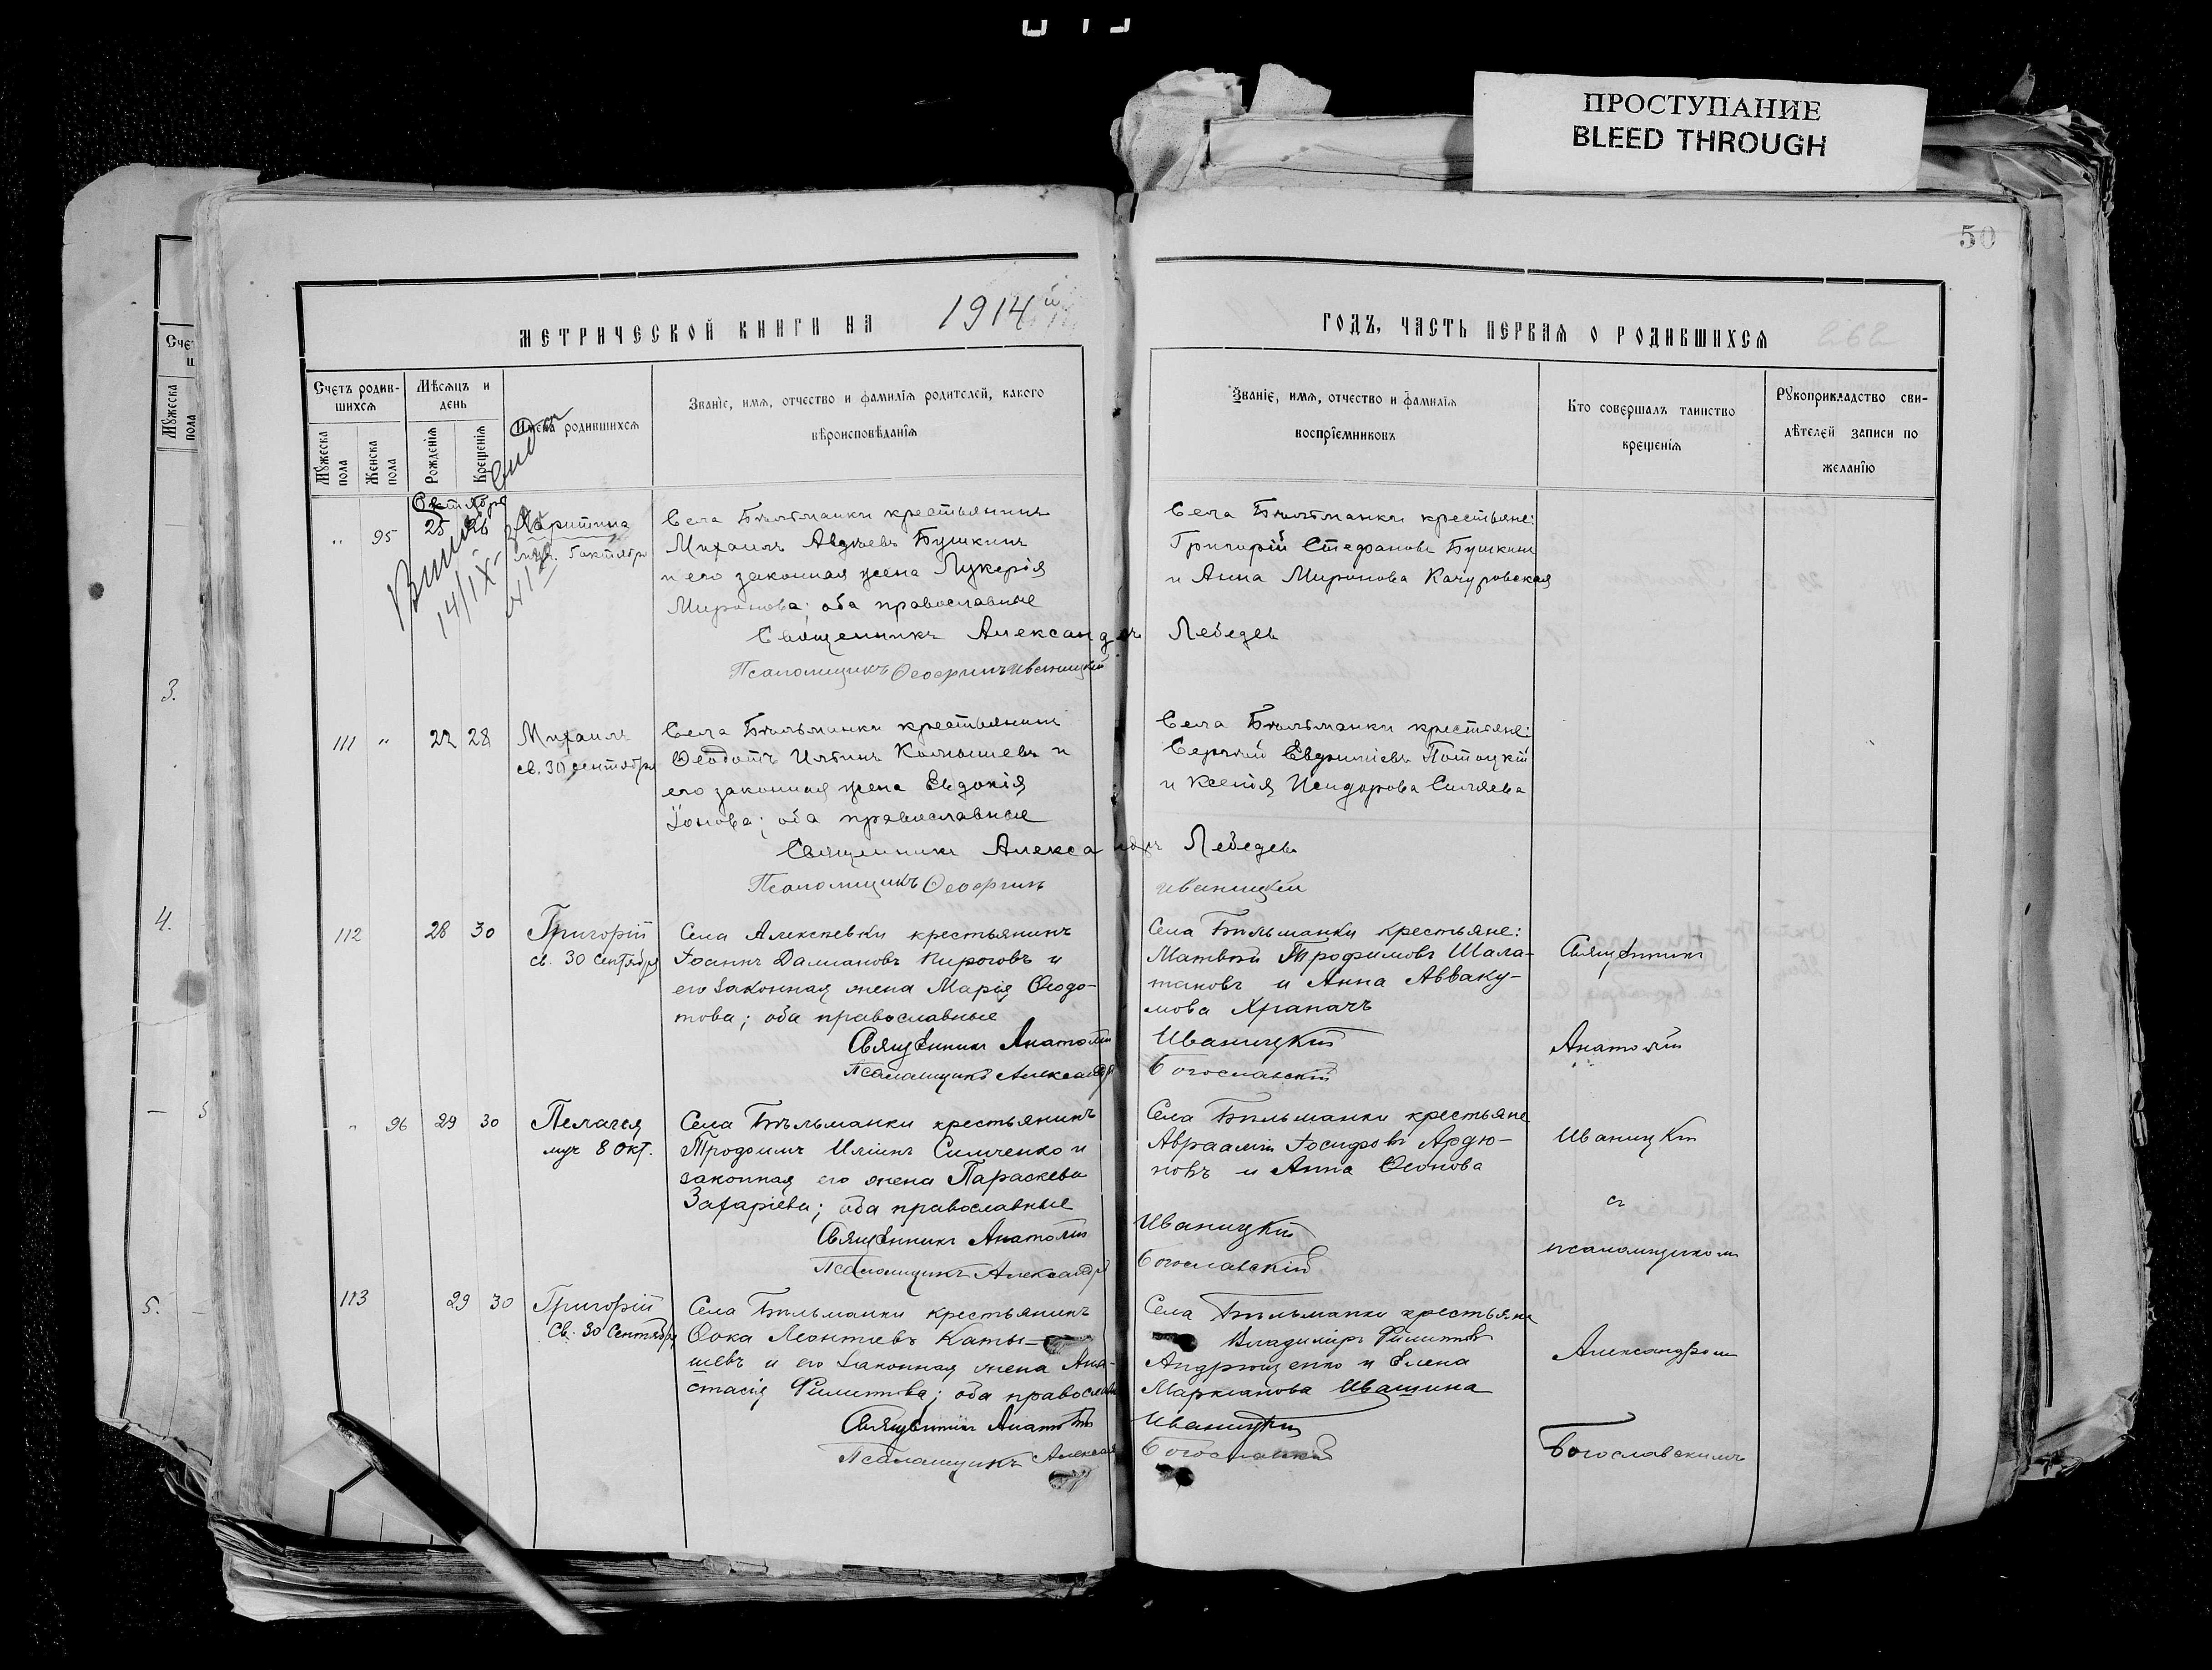 ПРОСТУПАНИЕ
BLEED THROUGH
50
МЕТРИЧЕСКОЙ КНИГИ НА 1914й
ГОДЪ, ЧАСТЬ ПЕРВАЯ О РОДИВШИХСЯ
Счетъ родив-
шихся
Мужеска
пола
Женска
пола
Мѣсяцъ и
день
Рожденія
Крещенія
Имена родившихся
Званіе, имя, отчество и фамилія родителей, какого
вѣроисповѣданія
Званіе, имя, отчество и фамилія
воспріемниковъ
Кто совершалъ таинство
крещенія
Рукоприкладство сви-
дѣтелей записи по
желанію
" 95 25 26 Харитина
5 октября
Села Бѣльманки крестьянинъ
Михаилъ Авдѣевъ Бушкинъ
и его законная жена Лукерія
Миронова; оба православные
Священникъ Александръ Лебедевъ
Псаломщикъ Ѳеофилъ Иваницкій
Села Бѣльманки крестьяне:
Григорій Стефановъ Бушкинъ
и Анна Миронова Качуровская
111 " 22 28 Михаилъ
св. 30 сентября
Села Бѣльманки крестьянинъ
Ѳеодотъ Ильинъ Камышевъ и
его законная жена Евдокія
Іонова; оба православные
Священникъ Александръ Лебедевъ
Псаломщикъ Иваницкій
Села Бѣльманки крестьяне:
Сергѣй Евфиміевъ Потоцкій
и Ксенія Исидорова Силяева
112 28 30 Григорій
св. 30 Сентября
Села Алексѣевки крестьянинъ
Іоаннъ Даміановъ Пироговъ и
его законная жена Марія Ѳеодо-
това; оба православные
Священникъ Анатолій Иваницкій
Псаломщикъ Александръ Богославскій
Села Бѣльманки крестьяне:
Матвѣй Трофимовъ Шала-
тановъ и Анна Авваку-
мова Храпачъ
" 96 29 30 Пелагея
муч 8 Окт.
Села Бѣльманки крестьянинъ
Трофимъ Иліинъ Симченко и
законная его жена Параскева
Захаріева; оба православные
Священникъ Анатолій Иваницкій
Псаломщикъ Александръ Богославскій
Села Бѣльманки крестьяне
Авраамій Іосифовъ Ардю-
новъ и Анна
113 29 30 Григорій
Св. 30 Сентября
Села Бѣльманки крестьянинъ
Ѳока Леонтіевъ Камы-
шевъ и его законная жена Ана-
стасія Филиппова; оба православные
Священникъ Анатолій Иваницкій
Псаломщикъ Александръ Богославскій
Села Бѣльманки крестьяне
Владиміръ Филипповъ
Андрющенко и Елена
Маркіанова Ивашина
Священникъ
Анатолій
Иваницкій
съ
псаломщикомъ
Александромъ
Богославскимъ
Сче
Мужеска
пола
3.
4.
5.